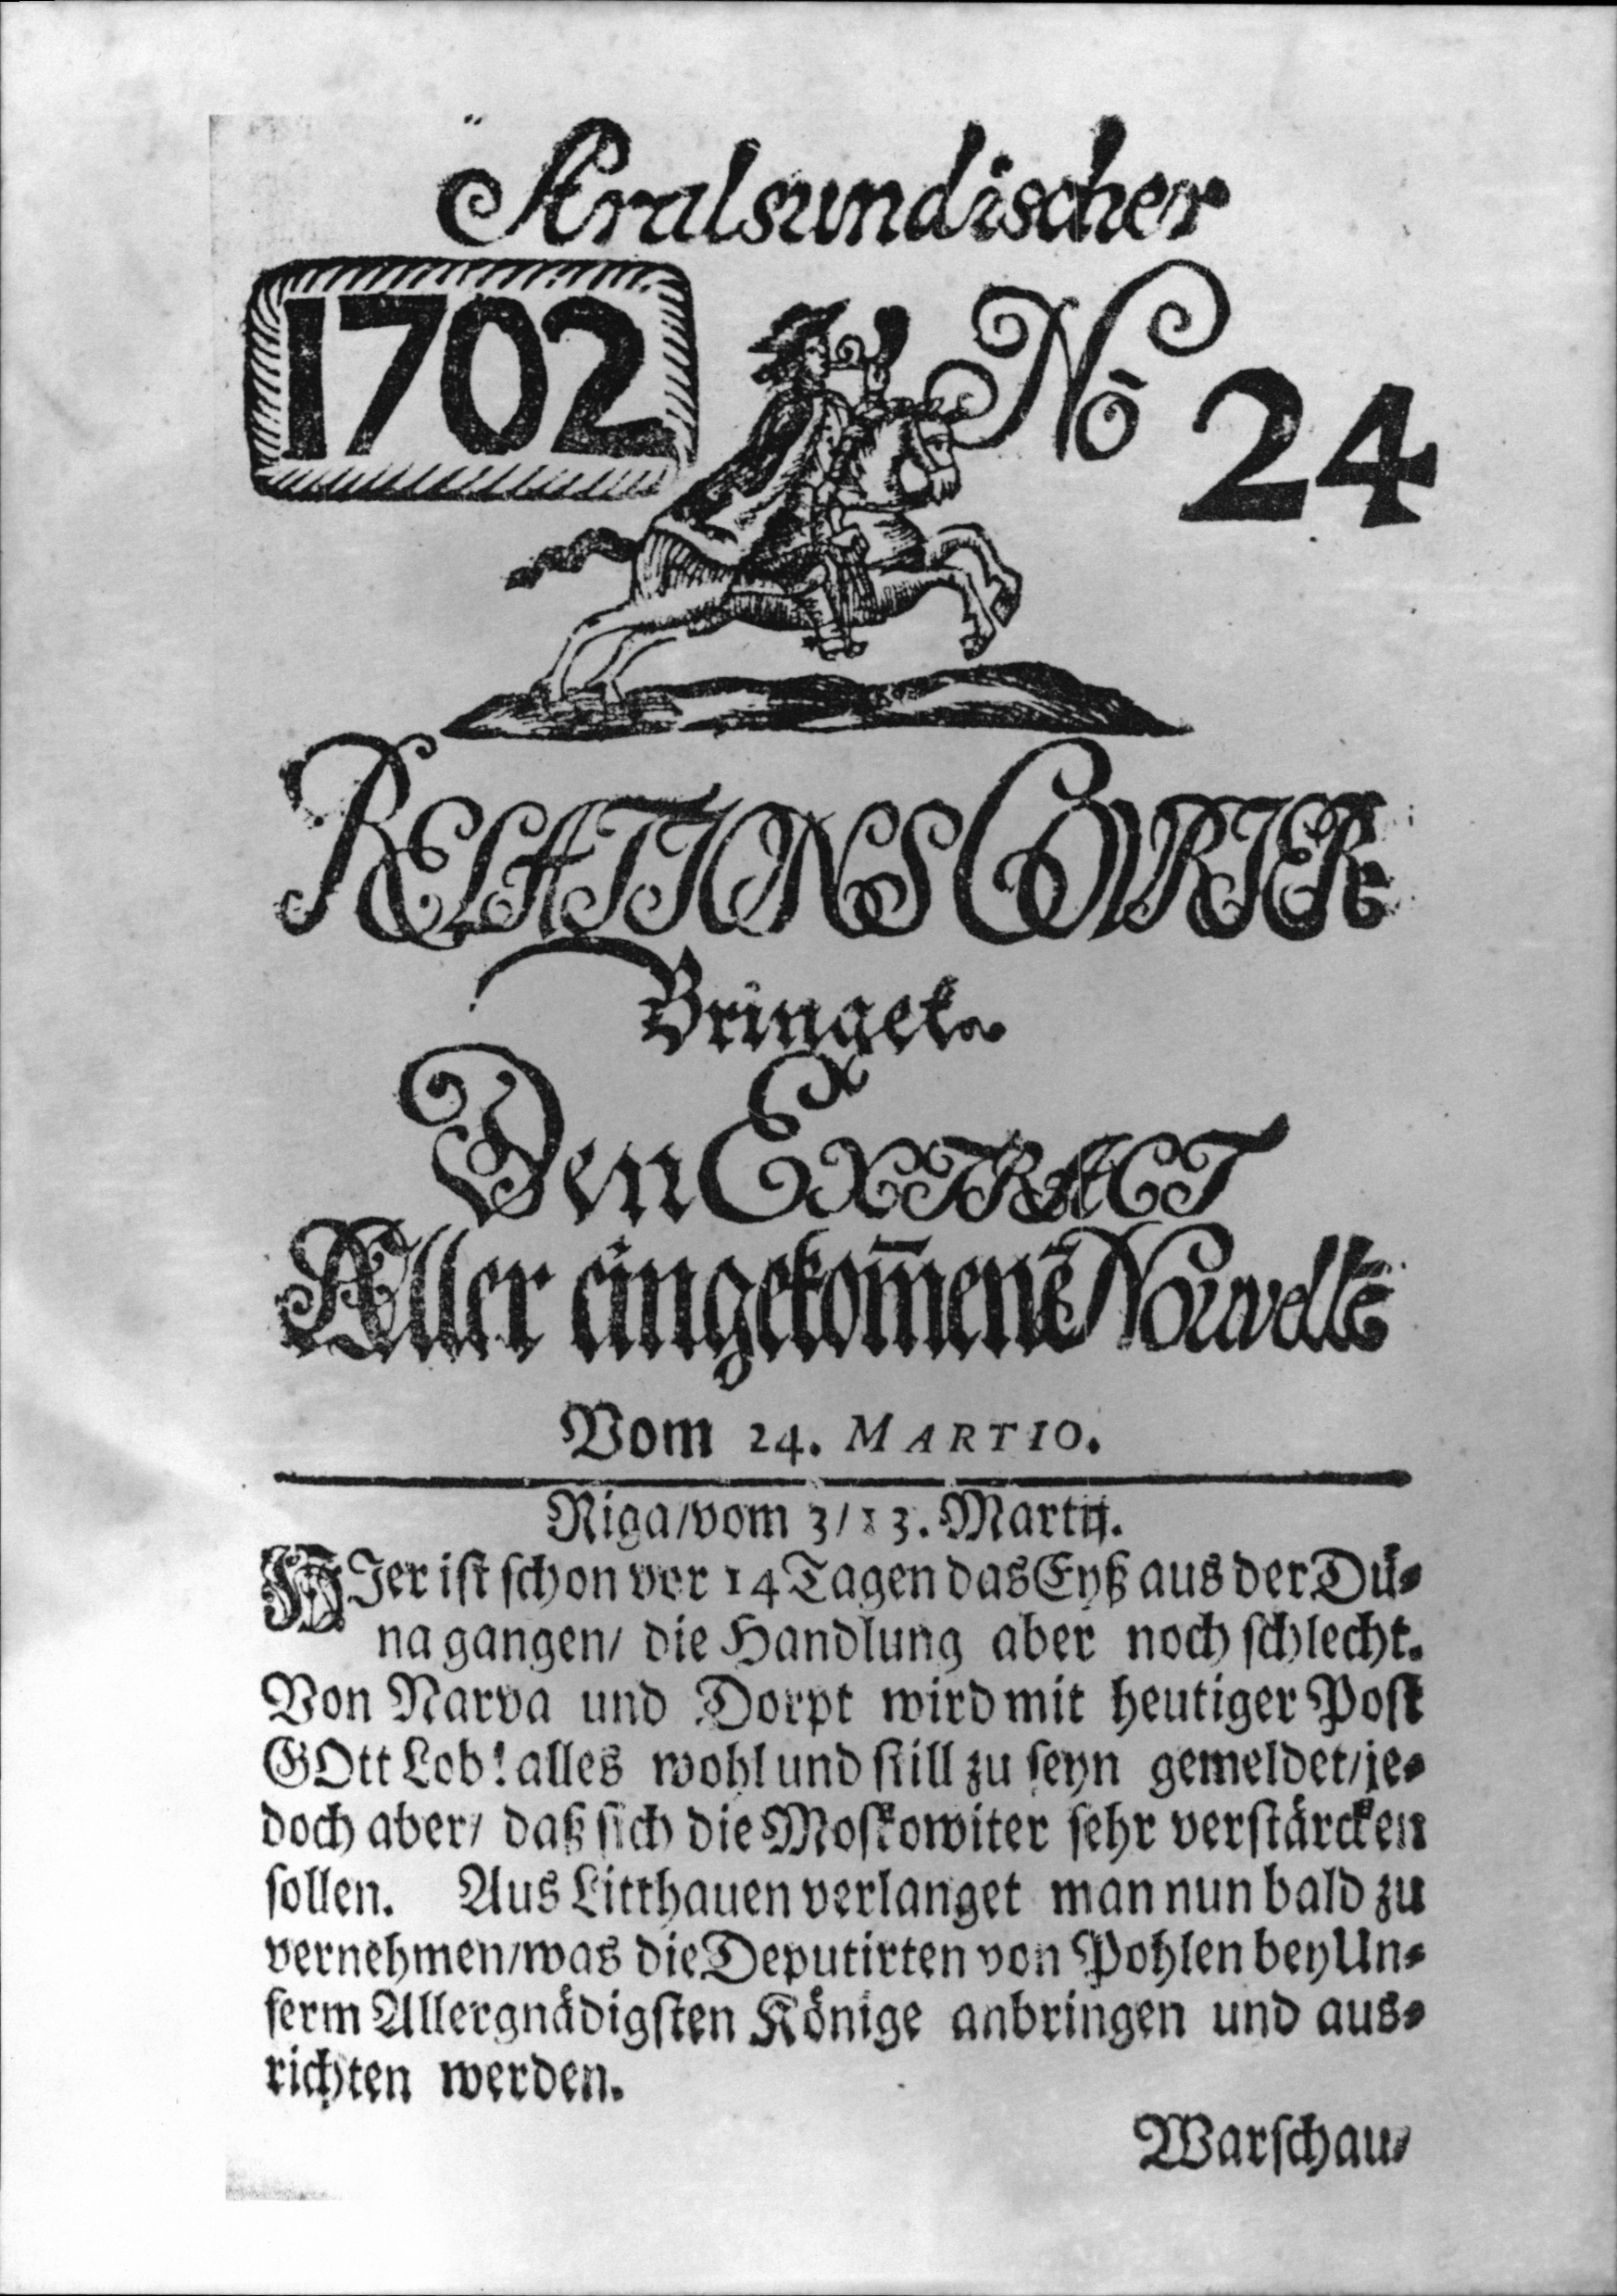 Stralsundischer
1702
No 24
RELATIONS COVRIER
Bringet
Den EXTRACT
Aller eingekom̅enē Nouvellē
Vom 24. MARTIO.
Riga/vom 3/13. Martij.
HJer ist schon vor 14 Tagen das Eyß aus der Dü-
na gangen/ die Handlung aber noch schlecht.
Von Narva und Dorpt wird mit heutiger Post
GOtt Lob! alles wohl und still zu seyn gemeldet/je-
doch aber/ daß sich die Moskowiter sehr verstärcken
sollen. Aus Litthauen verlanget man nun bald zu
vernehmen/was die Deputirten von Pohlen bey Un-
serm Allergnädigsten Könige anbringen und aus-
richten werden.
Warschau/